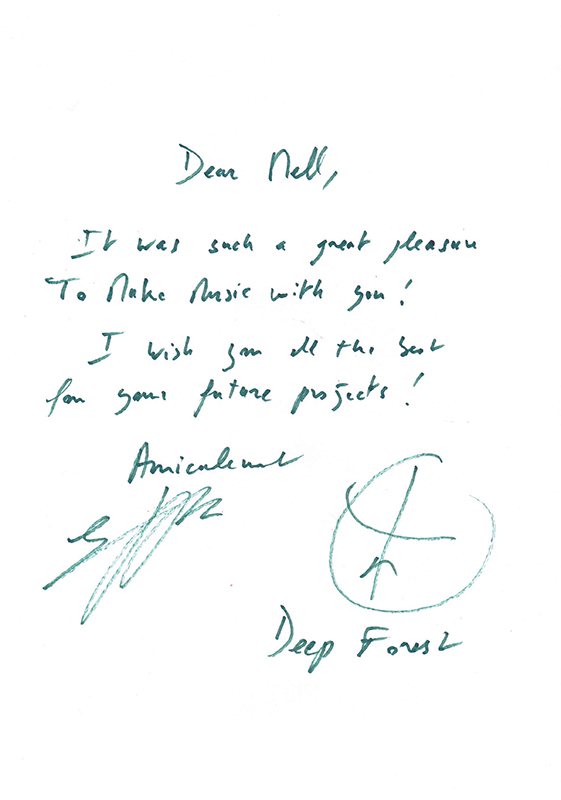 Dear Nell,
It was such a great pleasure
To Make Music with you!
I wish you all the best
for your future projects!
Amicalement
Deep Forest